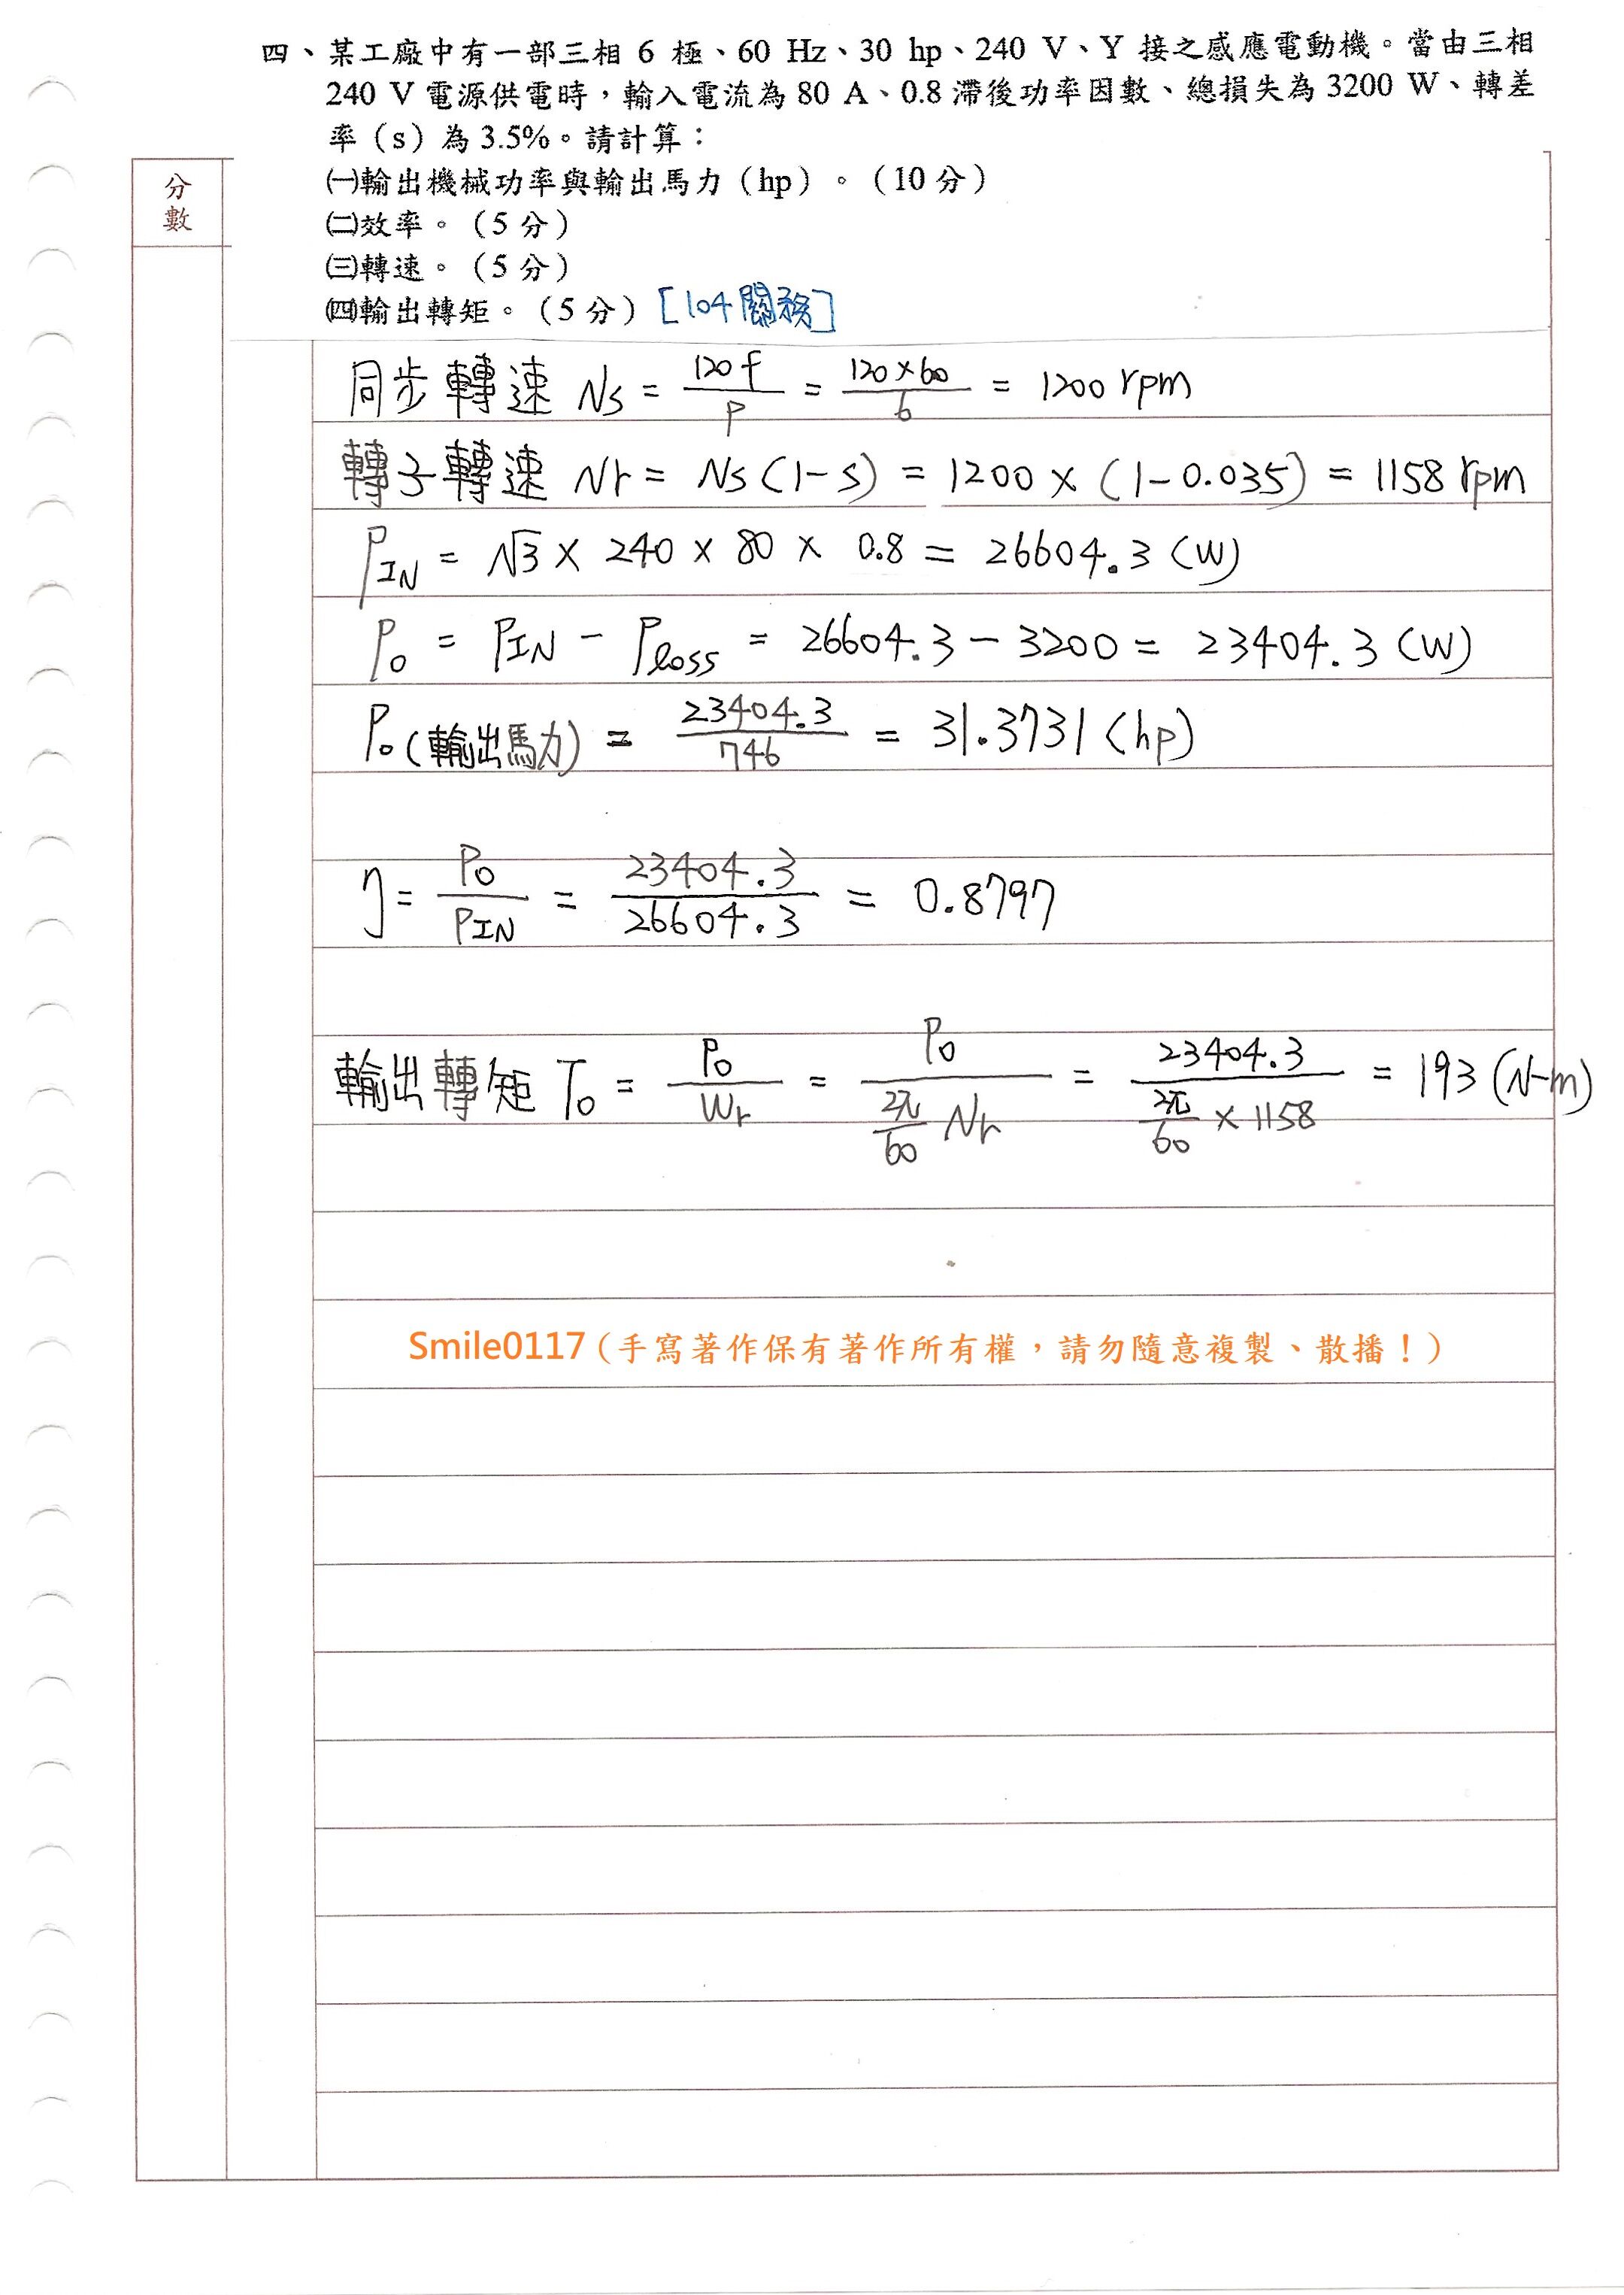 四、某工廠中有一部三相 6 極、60 Hz、30 hp、240 V、Y 接之感應電動機。當由三相
240 V 電源供電時，輸入電流為 80 A、0.8 滯後功率因數、總損失為 3200 W、轉差
率（s）為 3.5%。請計算：
㈠輸出機械功率與輸出馬力（hp）。（10 分）
㈡效率。（5 分）
㈢轉速。（5 分）
㈣輸出轉矩。（5 分）[104關務]
分數
同步轉速 Ns = 120f/P = 120×60/6 = 1200 rpm
轉子轉速 Nr = Ns(1-s) = 1200 × (1-0.035) = 1158 rpm
P_IN = √3 × 240 × 80 × 0.8 = 26604.3 (W)
P_o = P_IN - P_loss = 26604.3 - 3200 = 23404.3 (W)
P_o (輸出馬力) = 23404.3/746 = 31.3731 (hp)
η = P_o/P_IN = 23404.3/26604.3 = 0.8797
輸出轉矩 T_o = P_o/W_r = P_o/(2π/60 Nr) = 23404.3/(2π/60 × 1158) = 193 (N-m)
Smile0117（手寫著作保有著作所有權，請勿隨意複製、散播！）